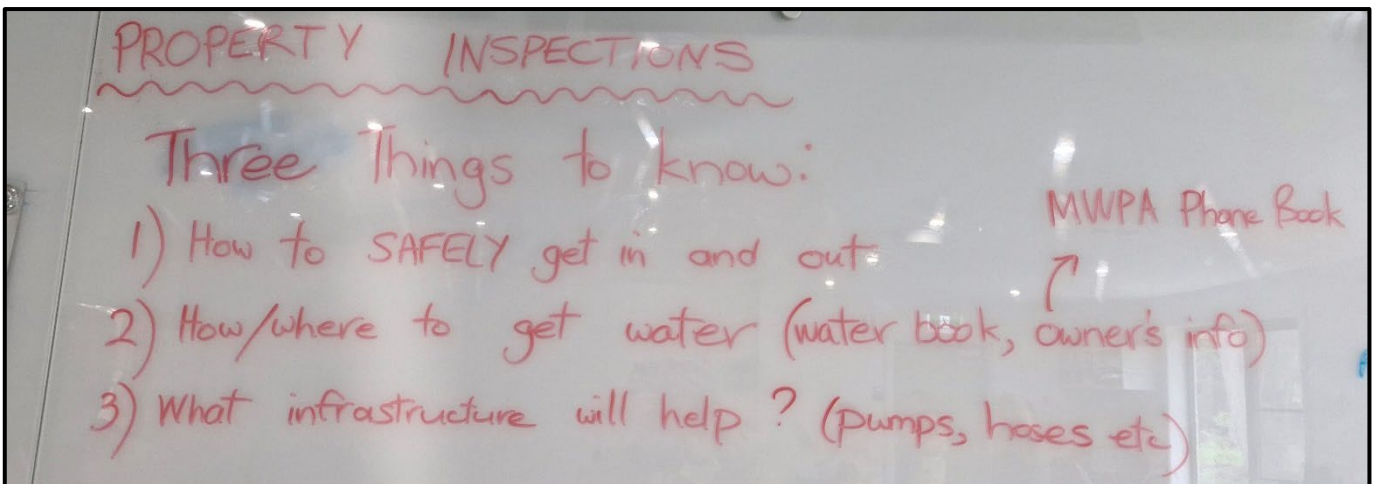 PROPERTY INSPECTIONS
Three Things to know:
1) How to SAFELY get in and out
MWPA Phone Book
2) How/where to get water (water book, owner's info)
3) What infrastructure will help? (pumps, hoses etc)